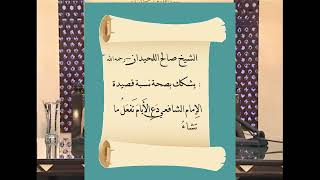 الشيخ صالح اللحيدان - رحمه الله
: يشكك بصحة نسبة قصيدة
الإمام الشافعي دَعِ الأَيَامَ تَفعَلُ ما
تَشاءُ